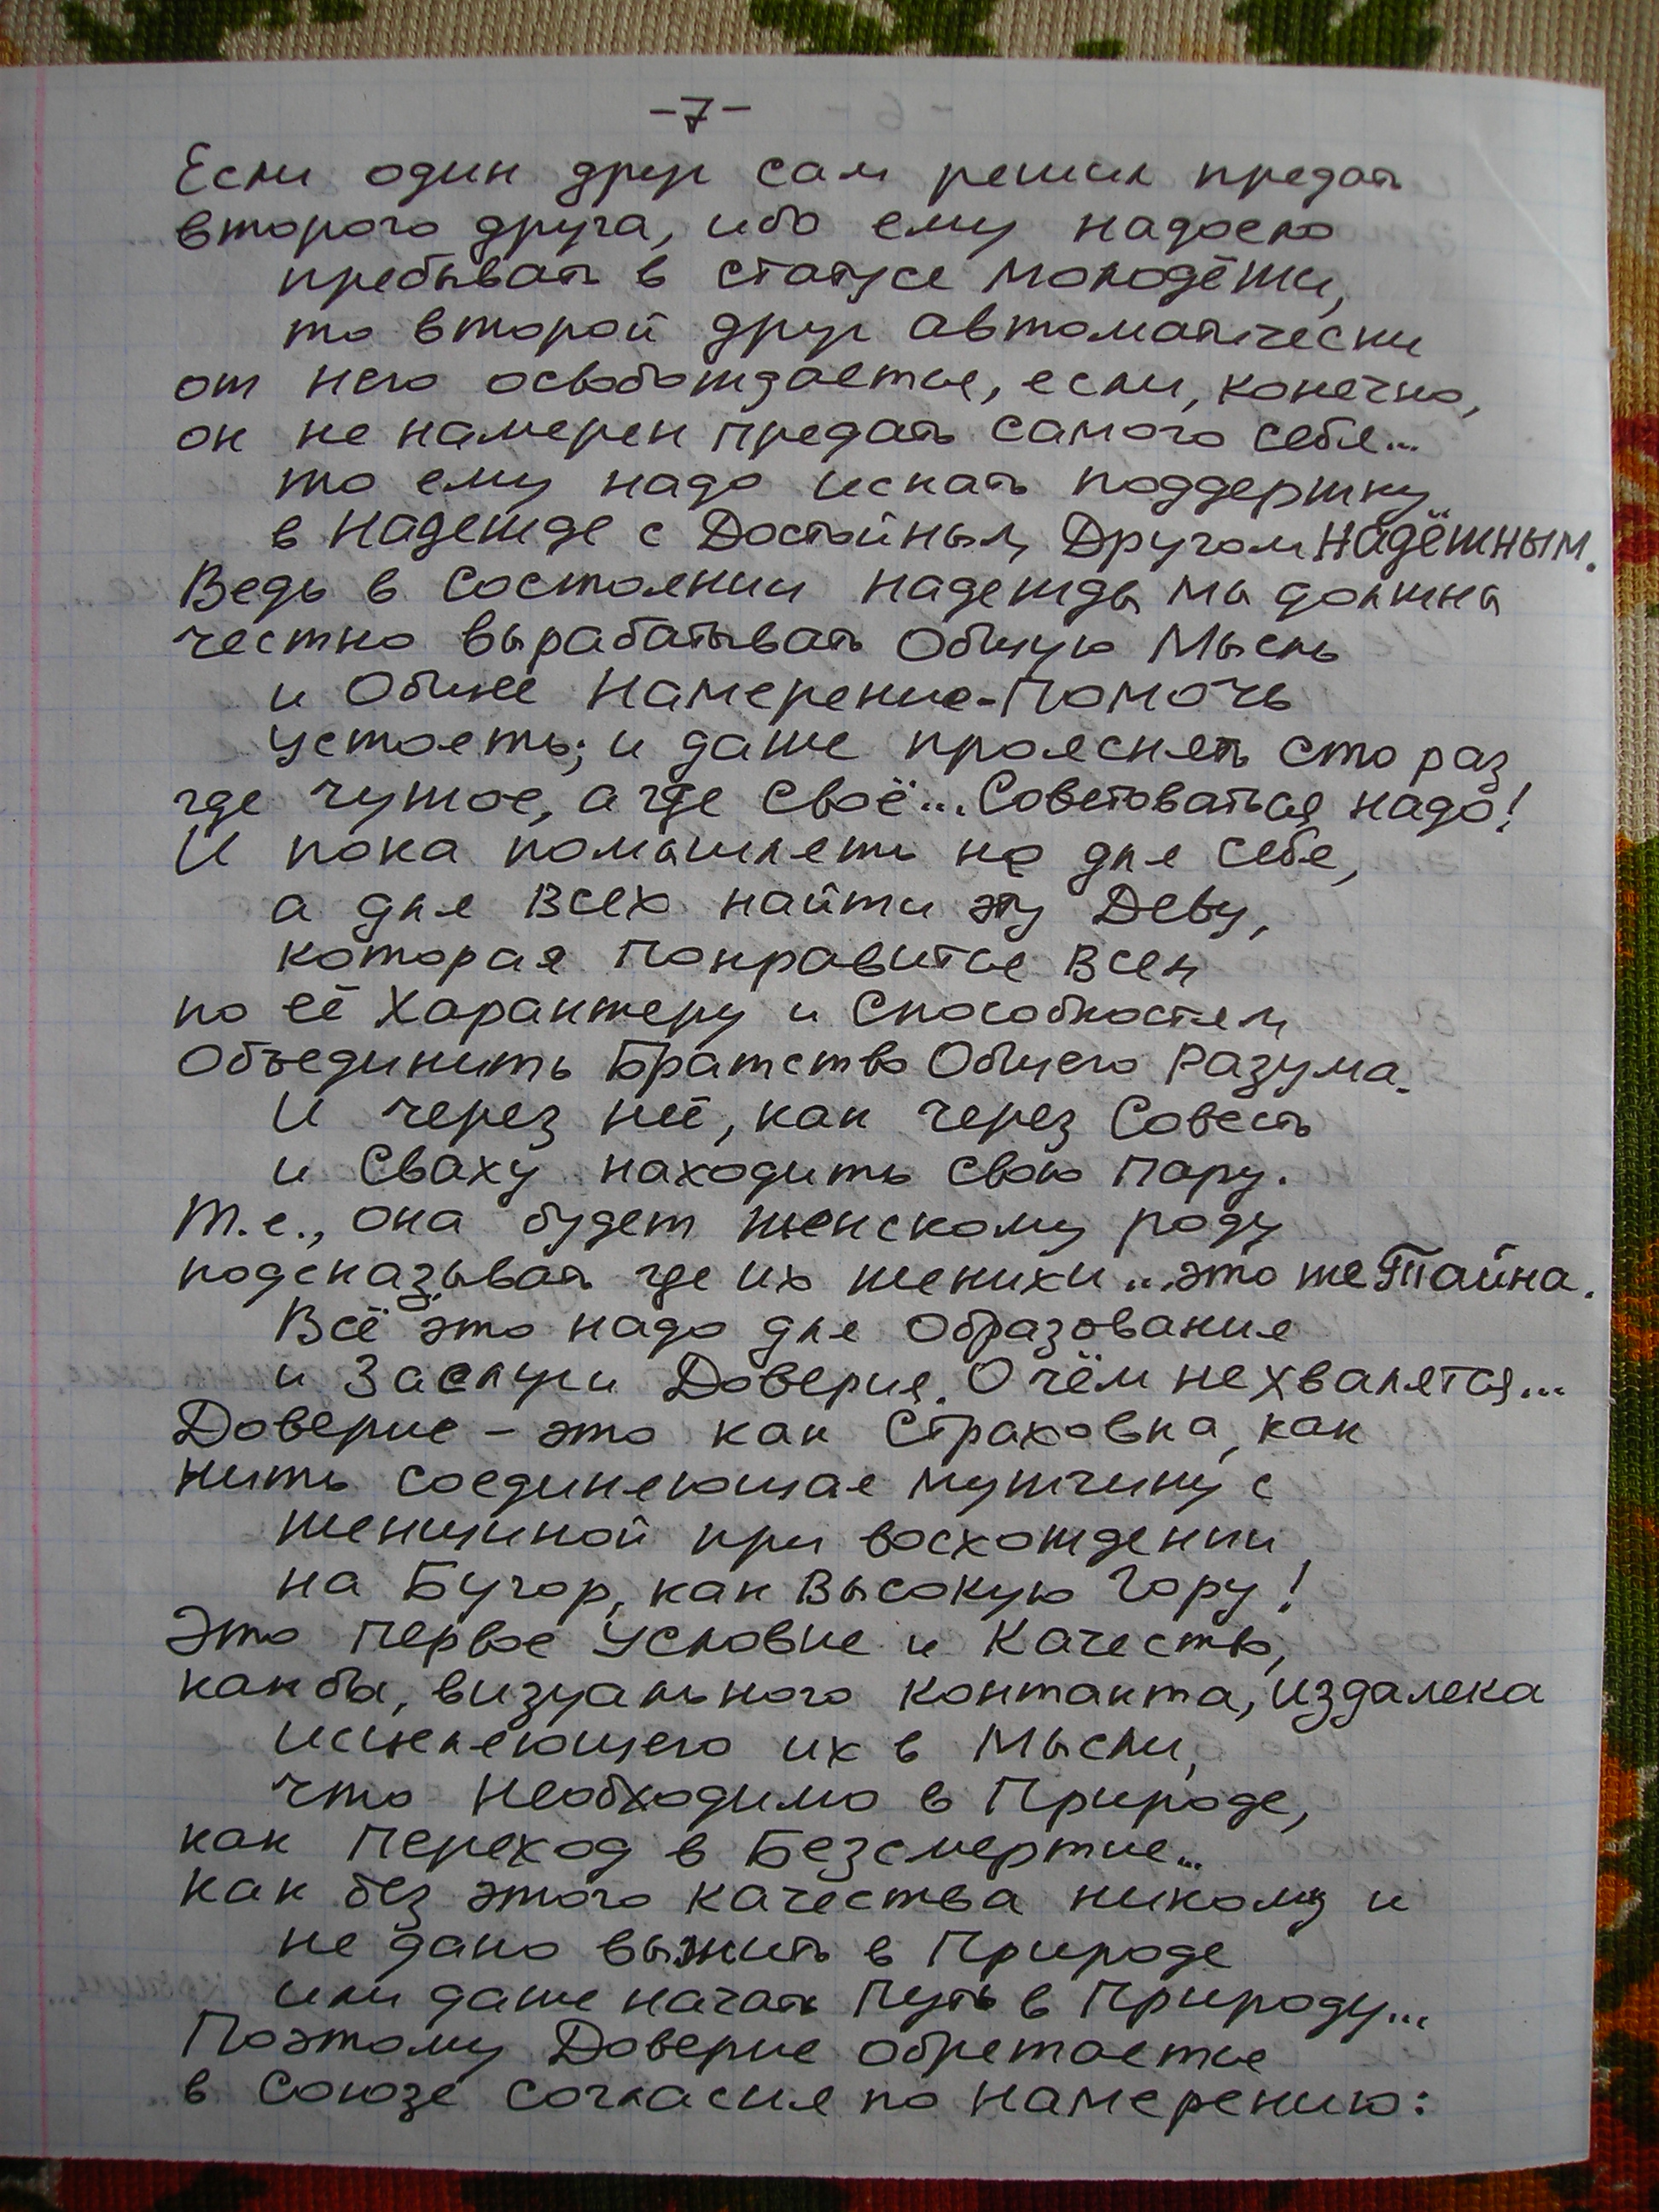 -7-
Если один друг сам решил предать
второго друга, ибо ему надоело
пребывать в статусе молодёжи,
то второй друг автоматически
от него освобождается, если, конечно,
он не намерен предать самого себя...
то ему надо искать поддержку
в Надежде с Достойным Другом Надёжным.
Ведь в состоянии надежды мы должны
честно вырабатывать Общую Мысль
и Общее Намерение-Помочь
устоять; и даже прояснять сто раз
где чужое, а где своё... Советоваться надо!
И пока помышлять не для себя,
а для Всех найти эту Деву,
которая Понравится Всем
по её Характеру и Способностям
Объединить Братство Общего Разума.
И через неё, как через Совесть
и Сваху находить свою Пару.
Т.е., она будет женскому роду
подсказывать где их женихи... это же Тайна.
Всё это надо для Образования
и Заслуги Доверия. О чём не хвалятся...
Доверие - это как Страховка, как
нить соединяющая мужчину с
женщиной при восхождении
на Бугор, как Высокую Гору!
Это Первое Условие и Качество,
как бы, визуального контакта, издалека
исцеляющего их в Мысли,
что Необходимо в Природе,
как Переход в Безсмертие...
Как без этого качества никому и
не дано выжить в Природе
или даже начать Путь в Природу...
Поэтому Доверие обретается
в Союзе Согласия по Намерению: